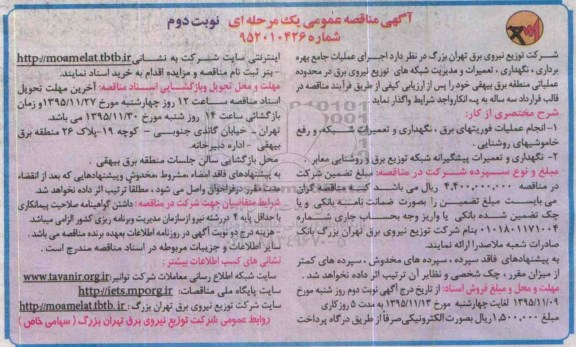 آگهی مناقصه عمومی یک مرحله ای نوبت دوم
شماره ۹۵۲۰۱۰۴۲۶
شرکت توزیع نیروی برق تهران بزرگ در نظر دارد اجرای عملیات جامع بهره
برداری ، نگهداری ، تعمیرات و مدیریت شبکه های توزیع نیروی برق در محدوده
عملیاتی منطقه برق بیهقی خود را پس از ارزیابی کیفی از طریق فرآیند مناقصه در
قالب قرارداد سه ساله به پیمانکار واجد شرایط واگذار نماید
شرح مختصری از کار:
۱- انجام عملیات فوریتهای برق ، نگهداری و تعمیرات شبکه و رفع
خاموشیهای روشنایی .
۲- نگهداری و تعمیرات پیشگیرانه شبکه توزیع برق و روشنایی معابر .
مبلغ و نوع سپرده شرکت در مناقصه: مبلغ تضمین شرکت
در مناقصه ۴,۴۰۰,۰۰۰,۰۰۰ ریال می باشد که مناقصه گران
می بایست مبلغ تضمین را بصورت ضمانت نامه بانکی و یا
چک تضمین شده بانکی یا واریز وجه بحساب جاری شماره
۰۱۰۱۸۰۱۱۷۱۰۰۴ بنام شرکت توزیع نیروی برق تهران بزرگ بانک
صادرات شعبه ملاصدرا ارائه نمایند.
به پیشنهادهای فاقد سپرده ، سپرده های مخدوش ، سپرده های کمتر
از میزان مقرر ، چک شخصی و نظایر آن ترتیب اثر داده نخواهد شد.
مهلت و محل و مبلغ فروش اسناد: از تاریخ درج آگهی نوبت دوم روز شنبه مورخ
۱۳۹۵/۱۱/۰۹ لغایت چهارشنبه مورخ ۱۳۹۵/۱۱/۱۳ به مدت ۵ روز کاری
مبلغ ۱,۵۰۰,۰۰۰ ریال بصورت الکترونیکی صرفاً از طریق درگاه پرداخت
اینترنتی سایت شرکت به نشانی http://moamelat.tbtb.ir
- بنر ثبت نام مناقصه و مزایده اقدام به خرید اسناد نمایند.
مهلت و محل تحویل وبازگشایی اسناد مناقصه: آخرین مهلت تحویل
اسناد مناقصه ساعت ۱۲ روز چهارشنبه مورخ ۱۳۹۵/۱۱/۲۷ و زمان
بازگشائی ساعت ۱۴ روز شنبه مورخ ۱۳۹۵/۱۱/۳۰ می باشد.
تهران - خیابان گاندی جنوبی - کوچه ۱۹ -پلاک ۲۶ منطقه برق
بیهقی - اداره دبیرخانه.
محل بازگشایی سالن جلسات منطقه برق بیهقی .
به پیشنهادهای فاقد امضاء، مشروط ،مخدوش وپیشنهادهایی که بعد از انقضاء
مدت مقرر درفراخوان واصل می شود ، مطلقا ترتیب اثر داده نخواهد شد.
شرایط متقاضیان جهت شرکت در مناقصه: داشتن گواهینامه صلاحیت پیمانکاری
با حداقل پایه ۴ دررشته نیرو ازسازمان مدیریت وبرنامه ریزی کشور الزامی میباشد
- هزینه درج دو نوبت آگهی در روزنامه اطلاعات بعهده برنده مناقصه می باشد.
سایر اطلاعات و جزییات مربوطه در اسناد مناقصه مندرج است .
نشانی های کسب اطلاعات بیشتر:
سایت شبکه اطلاع رسانی معاملات شرکت توانیر: www.tavanir.org.ir
سایت پایگاه ملی مناقصات: http://iets.mporg.ir
سایت شرکت توزیع نیروی برق تهران بزرگ: http://moamelat.tbtb.ir
روابط عمومی شرکت توزیع نیروی برق تهران بزرگ ( سهامی خاص )